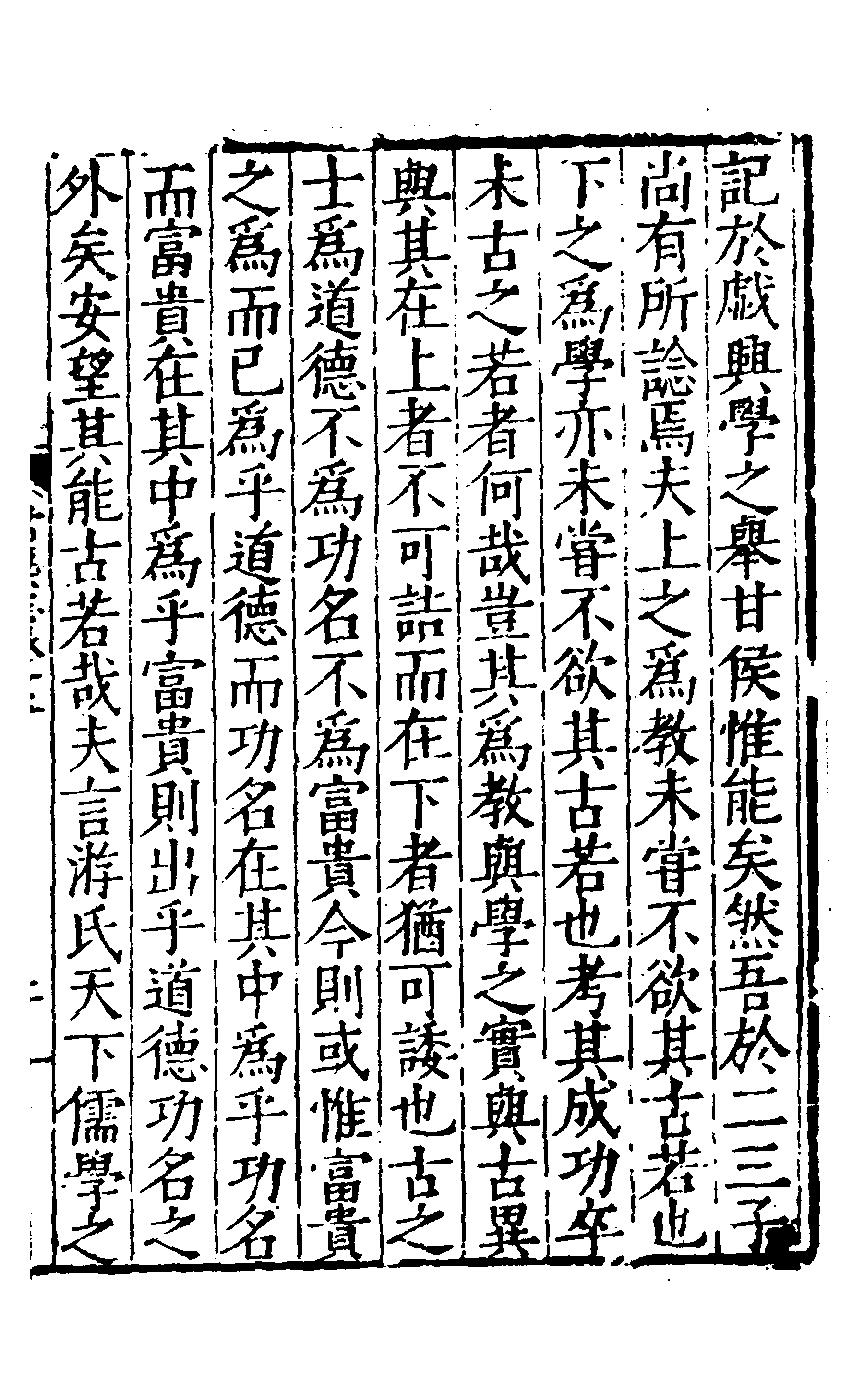 記於戯興學之舉甘侯惟能矣然吾於二三子
尚有所諗焉夫上之爲教未甞不欲其古若也
下之爲學亦未甞不欲其古若也考其成功卒
未古之若者何哉豈其爲教與學之實與古異
與其在上者不可詰而在下者猶可諉也古之
士爲道德不爲功名不爲富貴今則或惟富貴
之爲而已爲乎道德而功名在其中爲乎功名
而富貴在其中爲乎富貴則出乎道德功名之
外矣安望其能古若哉夫言游氏天下儒學之